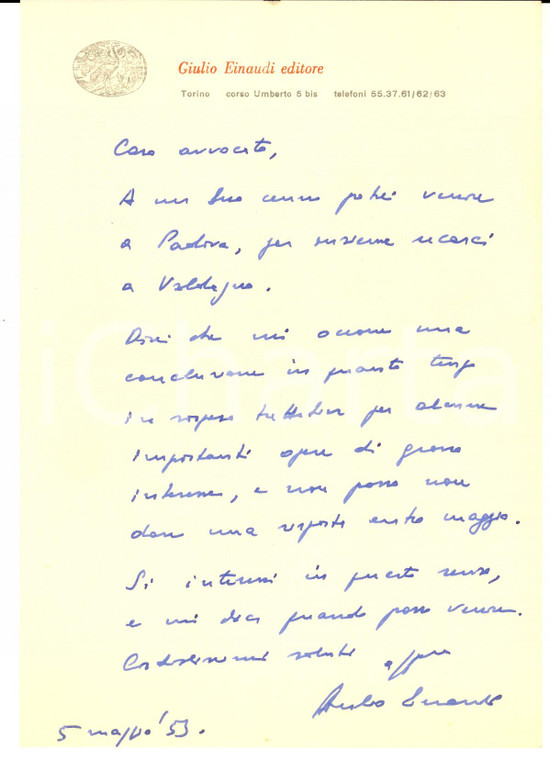 Giulio Einaudi editore
Torino corso Umberto 5 bis telefoni 55.37.61/62/63
Caro avvocato,
A un Suo cenno potrei venire
a Padova, per insieme recarci
a Valdagno.
Direi che mi occorre una
conclusione in quanto tengo
in sospeso trattative per alcune
importanti opere di grosso
interesse, e non posso non
dare una risposta entro maggio.
Si interessi in questo senso,
e mi dica quando posso venire.
Cordialissimi saluti
Giulio Einaudi
5 maggio '53.
iCharta